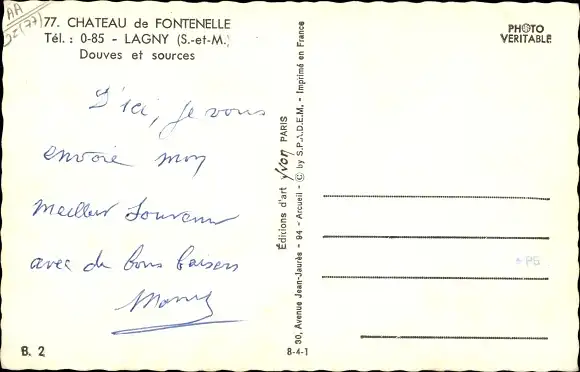 AA
77. CHATEAU de FONTENELLE
Tél. : 0-85 - LAGNY (S.-et-M.)
Douves et sources
PHOTO
VERITABLE
D'ici, je vous
envoie mon
meilleur souvenir
avec de bons baisers
Éditions d'art yvon PARIS
30, Avenue Jean-Jaurès - 94 - Arcueil - © by S.P.A.D.E.M. - Imprimé en France
B. 2
8-4-1